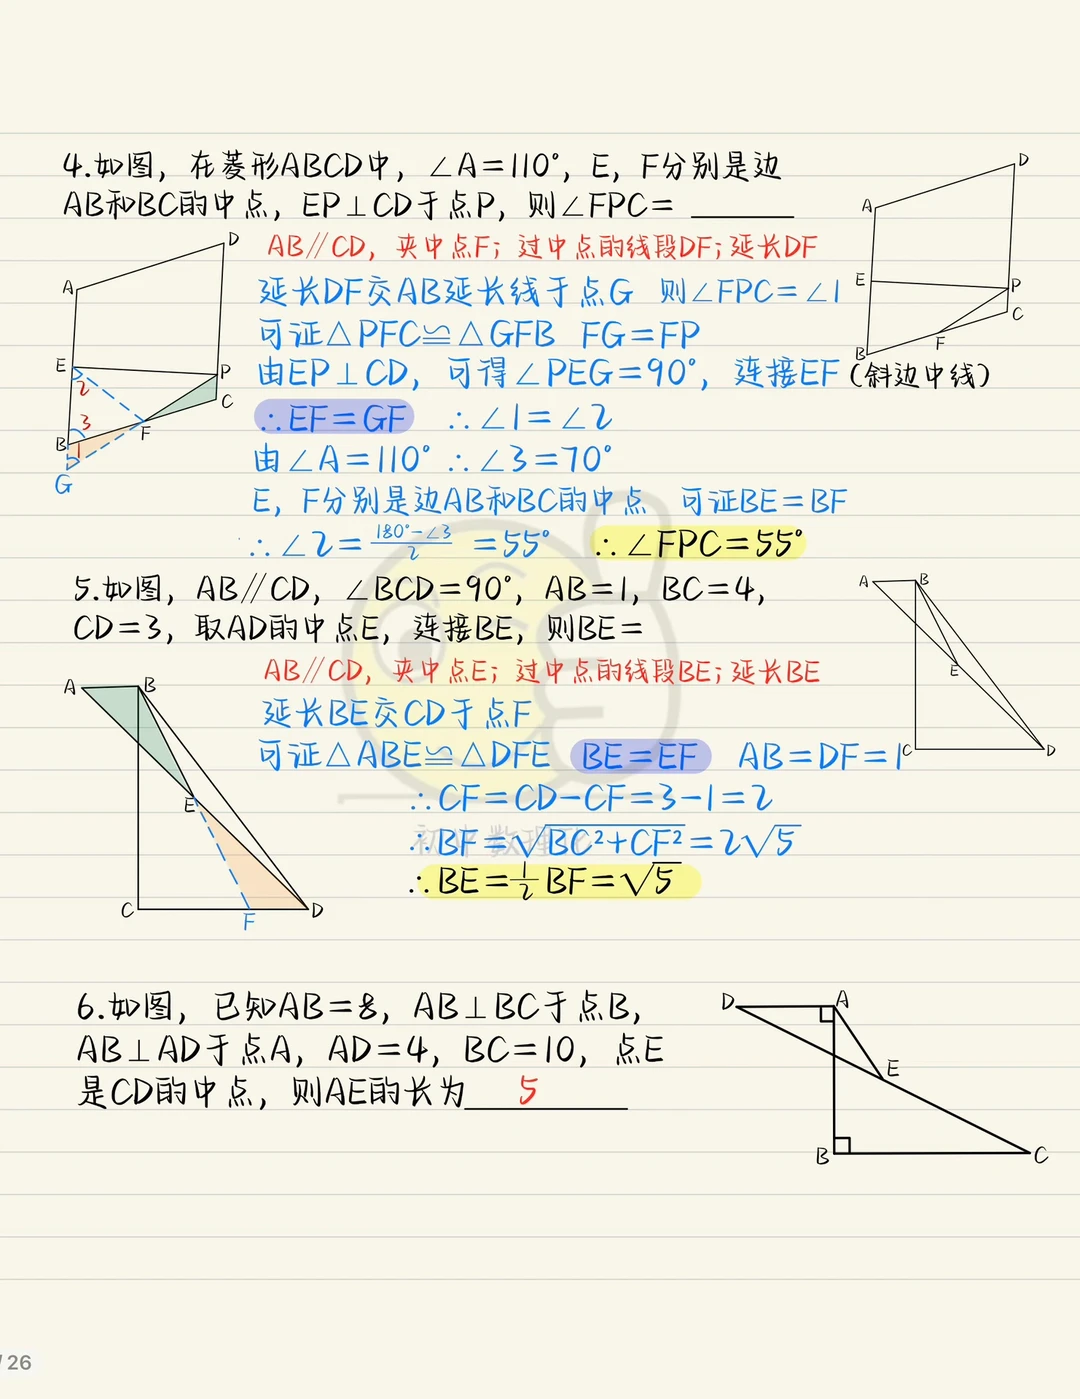 4.如图，在菱形ABCD中，∠A＝110°，E，F分别是边
AB和BC的中点，EP⊥CD于点P，则∠FPC＝ ______
AB∥CD，夹中点F；过中点的线段DF；延长DF
延长DF交AB延长线于点G 则∠FPC＝∠1
可证△PFC≌△GFB FG＝FP
由EP⊥CD，可得∠PEG＝90°，连接EF（斜边中线）
∴EF＝GF ∴∠1＝∠2
由∠A＝110° ∴∠3＝70°
E，F分别是边AB和BC的中点 可证BE＝BF
∴∠2＝(180°－∠3)/2 ＝55° ∴∠FPC＝55°
A
D
E
P
2
C
3
F
B
1
G
D
A
E
P
C
F
B
5.如图，AB∥CD，∠BCD＝90°，AB＝1，BC＝4，
CD＝3，取AD的中点E，连接BE，则BE＝
AB∥CD，夹中点E；过中点的线段BE；延长BE
延长BE交CD于点F
可证△ABE≌△DFE BE＝EF AB＝DF＝1
∴CF＝CD－CF＝3－1＝2
∴BF＝√BC²+CF²＝2√5
∴BE＝1/2 BF＝√5
A B
E
C
F
D
A B
E
C
D
初中数理化
6.如图，已知AB＝8，AB⊥BC于点B，
AB⊥AD于点A，AD＝4，BC＝10，点E
是CD的中点，则AE的长为 5
D
A
E
B
C
/ 26